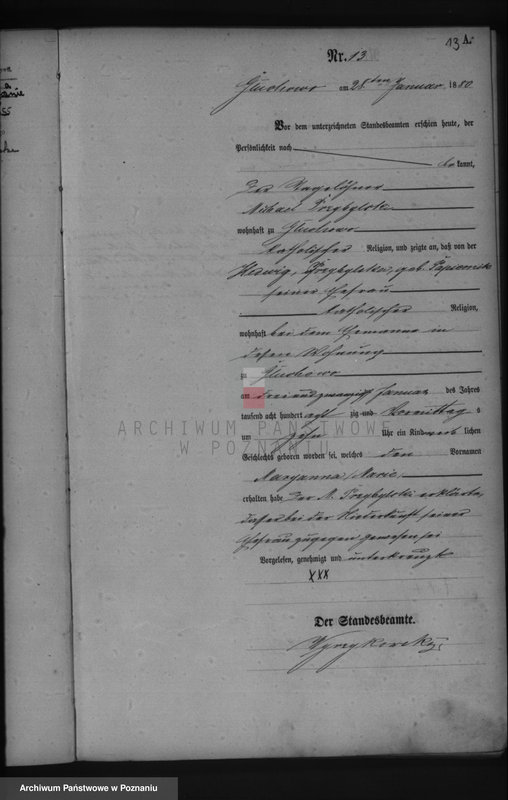 13 A.
Nr. 13
Gluchowo am 28ten Januar 1880
Vor dem unterzeichneten Standesbeamten erschien heute, der
Persönlichkeit nach
bekannt,
der Tagelöhner
Michael Przybylski
wohnhaft zu Gluchowo
katholischer Religion, und zeigte an, daß von der
Hedwig Przybylska, geb.
seiner Ehefrau
katholischer Religion,
wohnhaft bei dem Ehemanne in
dessen Wohnung
zu Gluchowo
am dreiundzwanzigsten Januar des Jahres
tausend acht hundert achtzig und Vormittags
um zehn Uhr ein Kind weiblichen
Geschlechts geboren worden sei, welches den Vornamen
Maryanna, Marie,
erhalten habe Der M. Przybylski erklärte,
daß er bei der Niederkunft seiner
Ehefrau zugegen gewesen sei
Vorgelesen, genehmigt und unterkreuzt
XXX
Der Standesbeamte.
ARCHIWUM PAŃSTWOWE
W POZNANIU
Archiwum Państwowe w Poznaniu